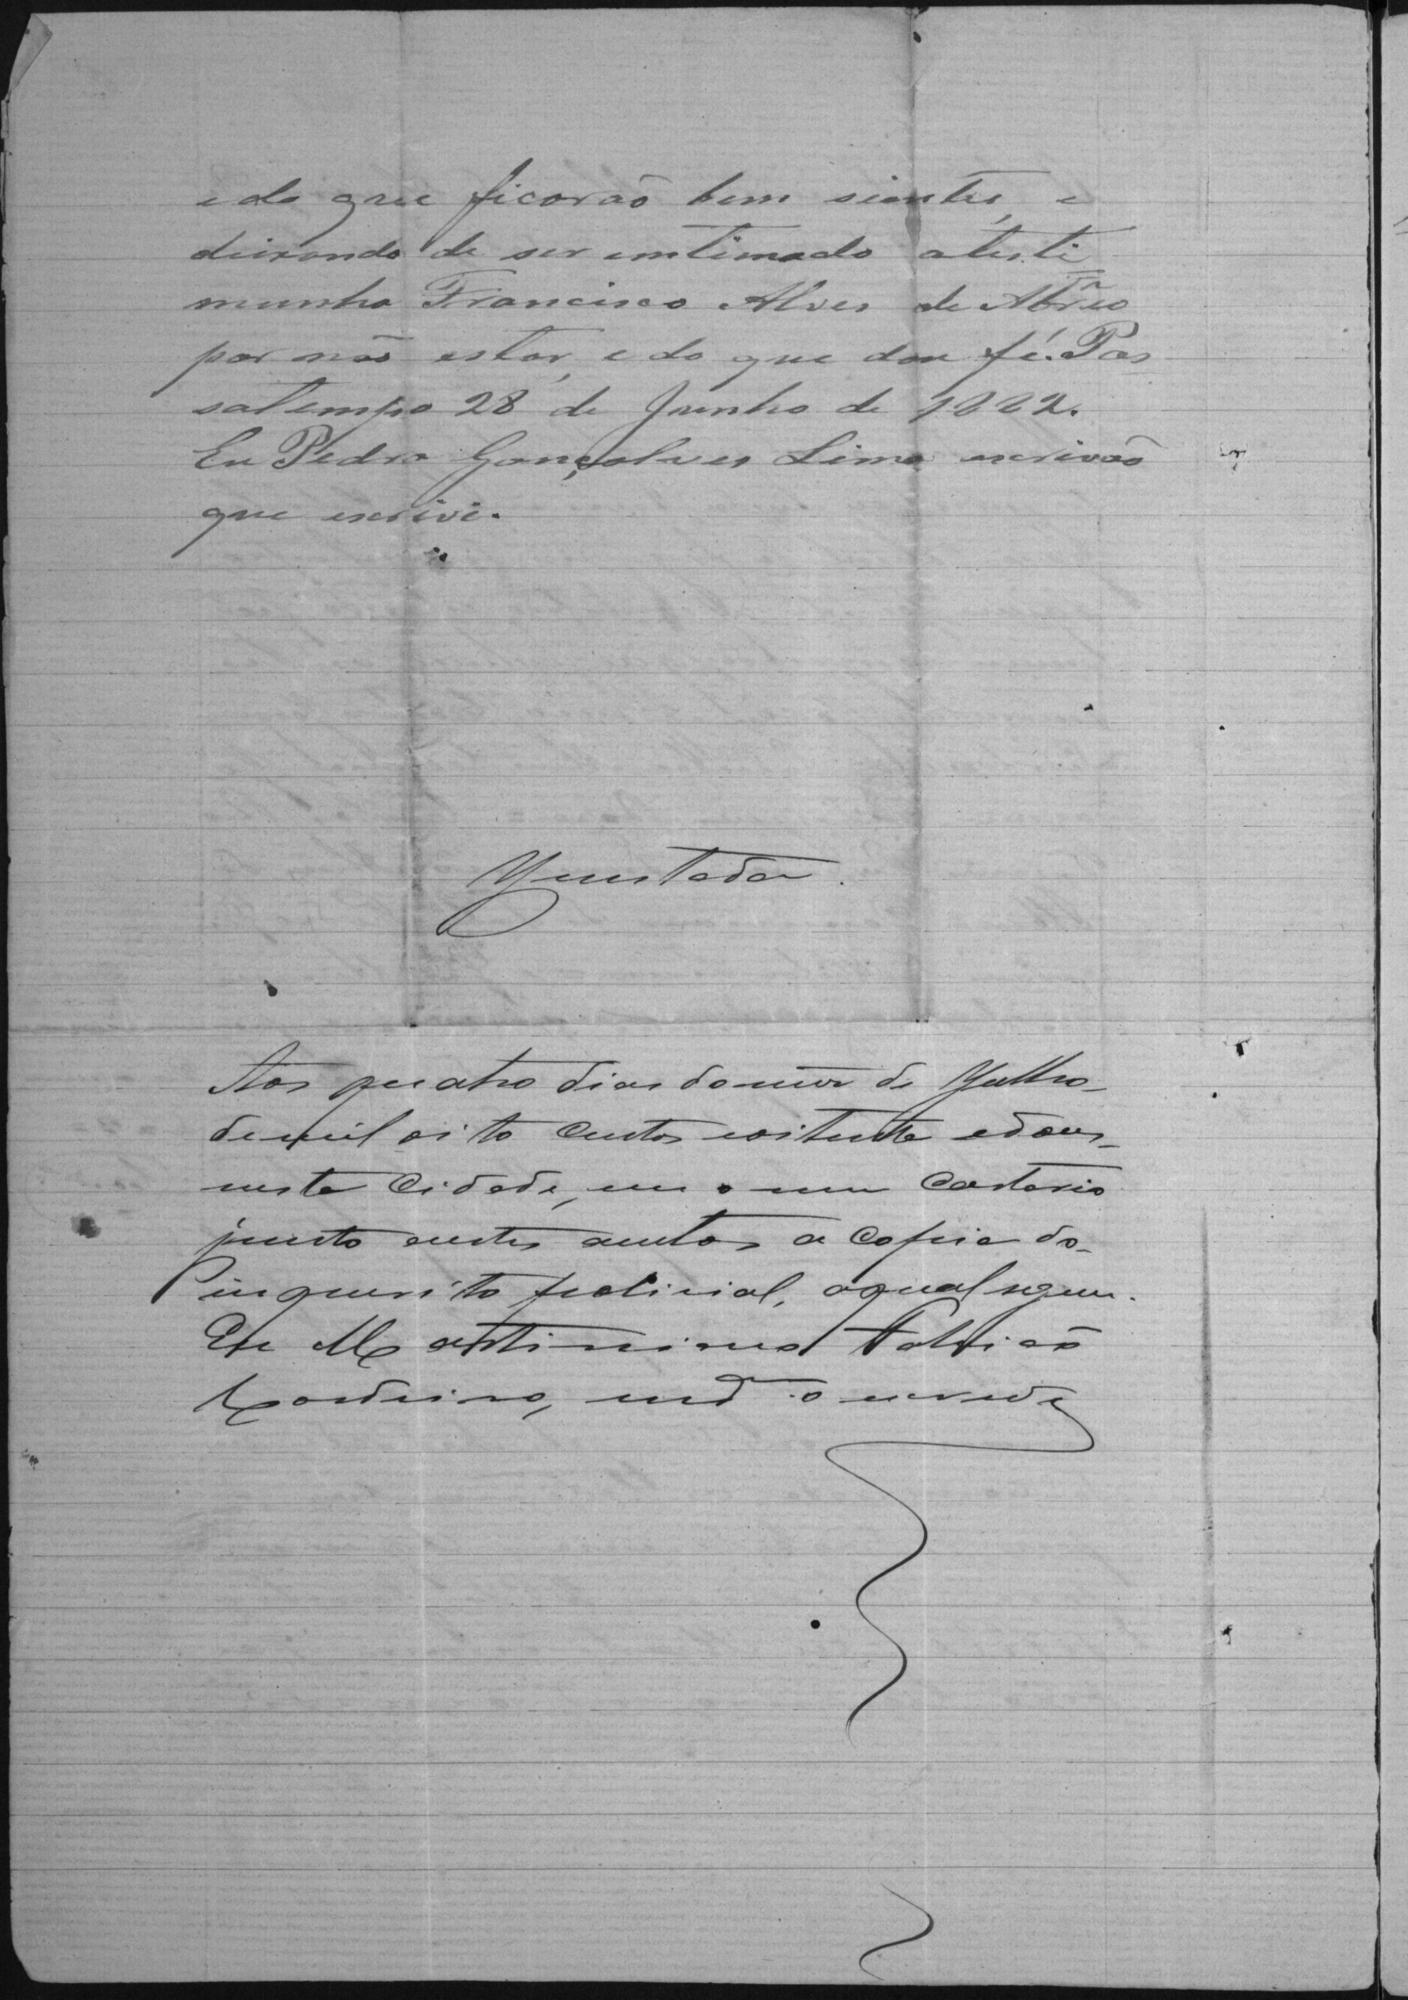 e do que ficarão bem sientes, e
deixando de ser emtimado atesti
munha Francisco Alves de Abrêo
por não estar, e do que dou fé. Pas
satempo 28 de Junho de 1882.
Eu Pedro Gonçalves Lima escrivão
que escrivi.
Yuntada.
Aos quatro dias do mes de Yulho
de mil oito centos e oitenta e dous,
nesta Cidade, em o meu Cartorio
junto a estes autos a copia do
inquerito policial, a qual segue.
Eu Martiniano
Cordeiro, o escrevi